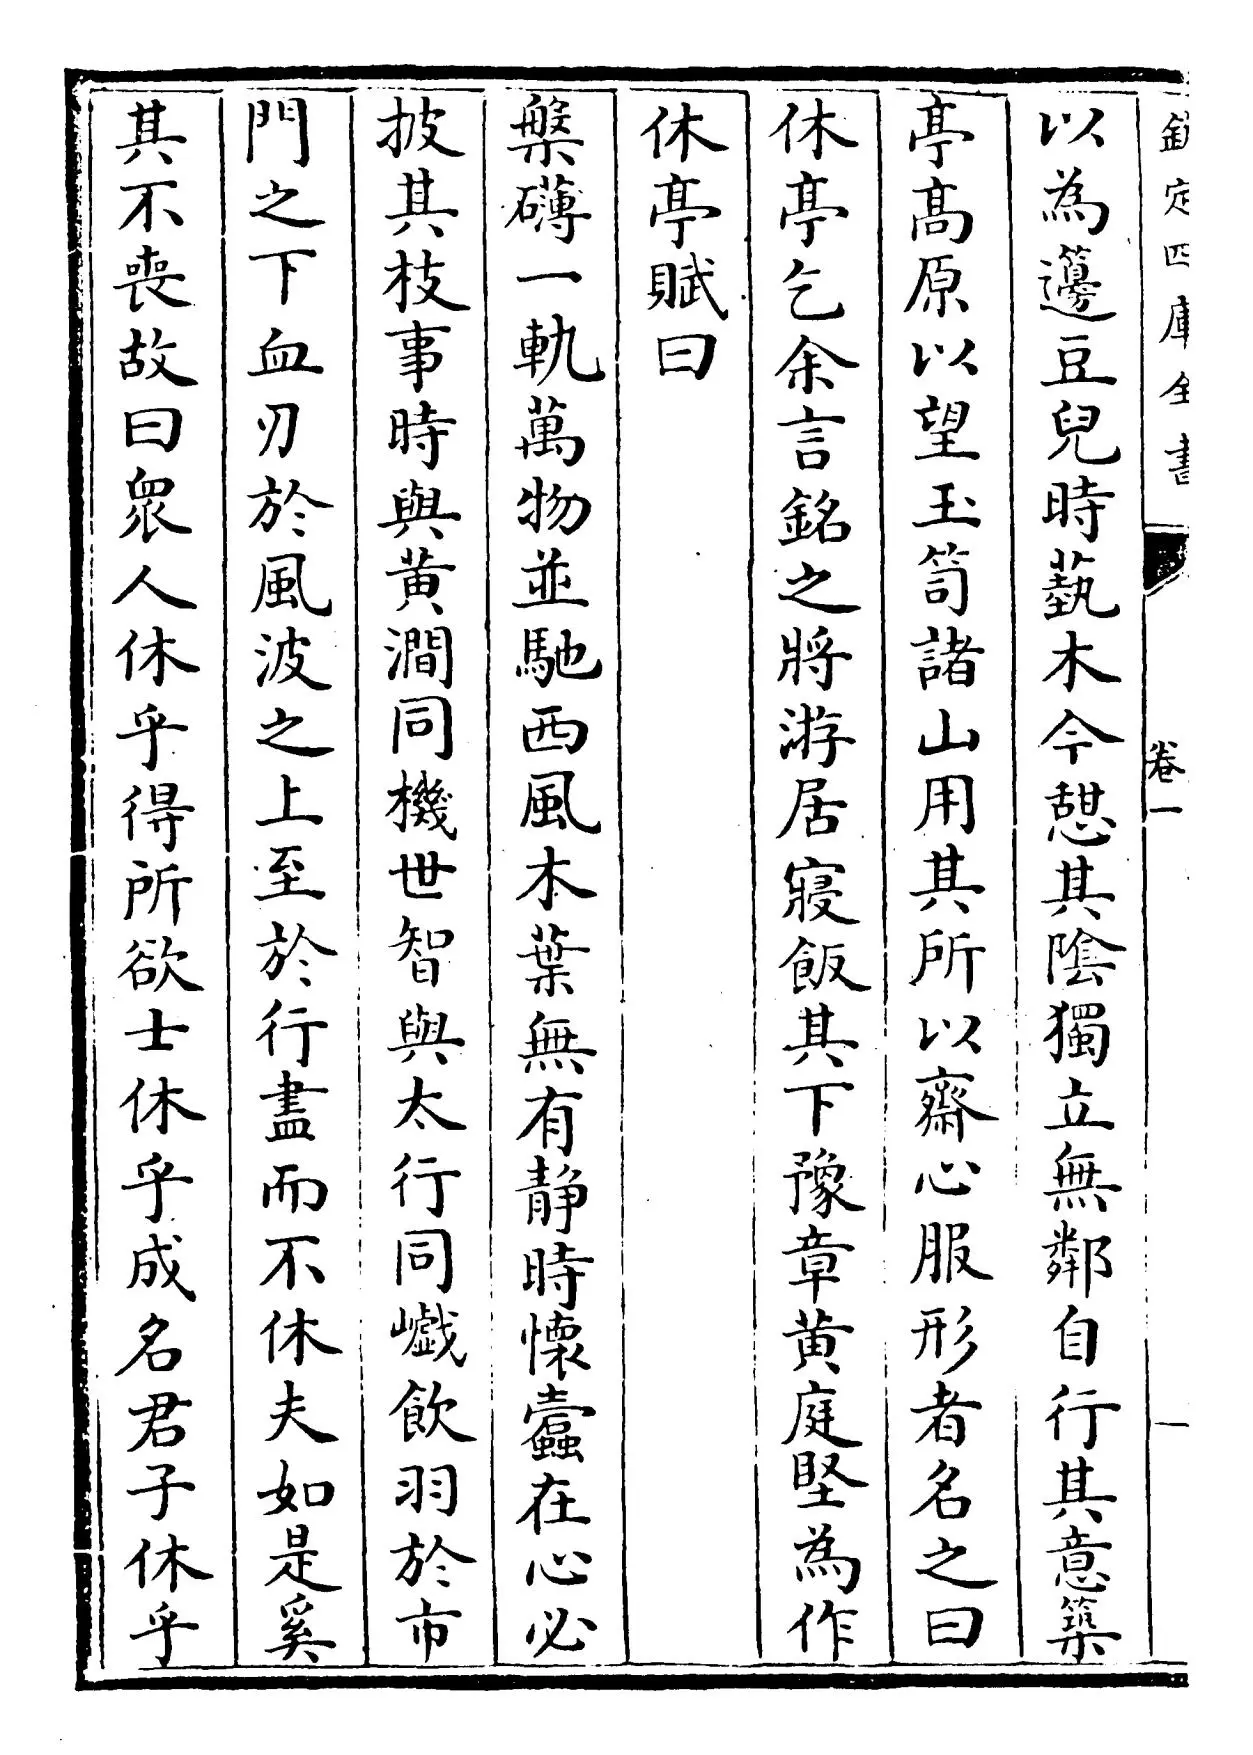 欽定四庫全書
卷一
一
以為籩豆兒時蓺木今憇其隂獨立無鄰自行其意築
亭髙原以望玉笥諸山用其所以齋心服形者名之曰
休亭乞余言銘之將游居寢飯其下豫章黄庭堅為作
休亭賦曰
槃礴一軌萬物並馳西風木葉無有静時懷蠧在心必
披其枝事時與黄澗同機世智與太行同巇飲羽於市
門之下血刃於風波之上至於行盡而不休夫如是奚
其不喪故曰衆人休乎得所欲士休乎成名君子休乎